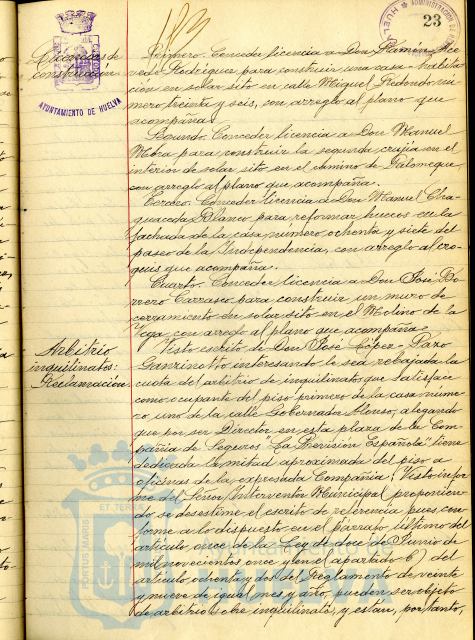 23
AYUNTAMIENTO DE HUELVA
Licencias de
construccion
Primero. Conceder licencia a Don Ramón Ace
vedo Rodriguez para construir una casa habita
ción en solar sito en calle Miguel Redondo nú
mero treinta y seis, con arreglo al plano que
acompaña.
Segundo. Conceder licencia a Don Manuel
Mora para construir la segunda crujía en el
interior de solar sito en el camino de Palomeque,
con arreglo al plano que acompaña.
Tercero. Conceder licencia de Don Manuel Cha
guaceda Blanco para reformar huecos en la
fachada de la casa número ochenta y siete del
paseo de la Independencia, con arreglo al cro
quis que acompaña.
Cuarto. Conceder licencia a Don José Bo
rrero Carrasco para construir un muro de
cerramiento en solar sito en el Molino de la
Vega con arreglo al plano que acompaña.
Arbitrio
inquilinatos:
Reclamación
Visto escrito de Don José Pazo
interesando le sea rebajada la
cuota del arbitrio de inquilinatos que satisface
como ocupante del piso primero de la casa núme
ro uno de la calle Gobernador Alonso, alegando
que por ser Director en esta plaza de la Com
pañia de Seguros "La Previsión Española" tiene
dedicada la mitad aproximada del piso a
oficinas de la expresada Compañia; Visto infor
me del Señor Interventor Municipal proponien
do se desestime el escrito de referencia pues con
forme a lo dispuesto en el párrafo último del
artículo once de la Ley de doce de Junio de
mil novecientos once y en el apartado b) del
artículo ochenta y dos del Reglamento de veinte
y nueve de igual mes y año, pueden ser objeto
de arbitrio sobre inquilinato, y están, por tanto,
PORTUS MARIS
ET TERRE
Ayuntamiento de
HUELVA